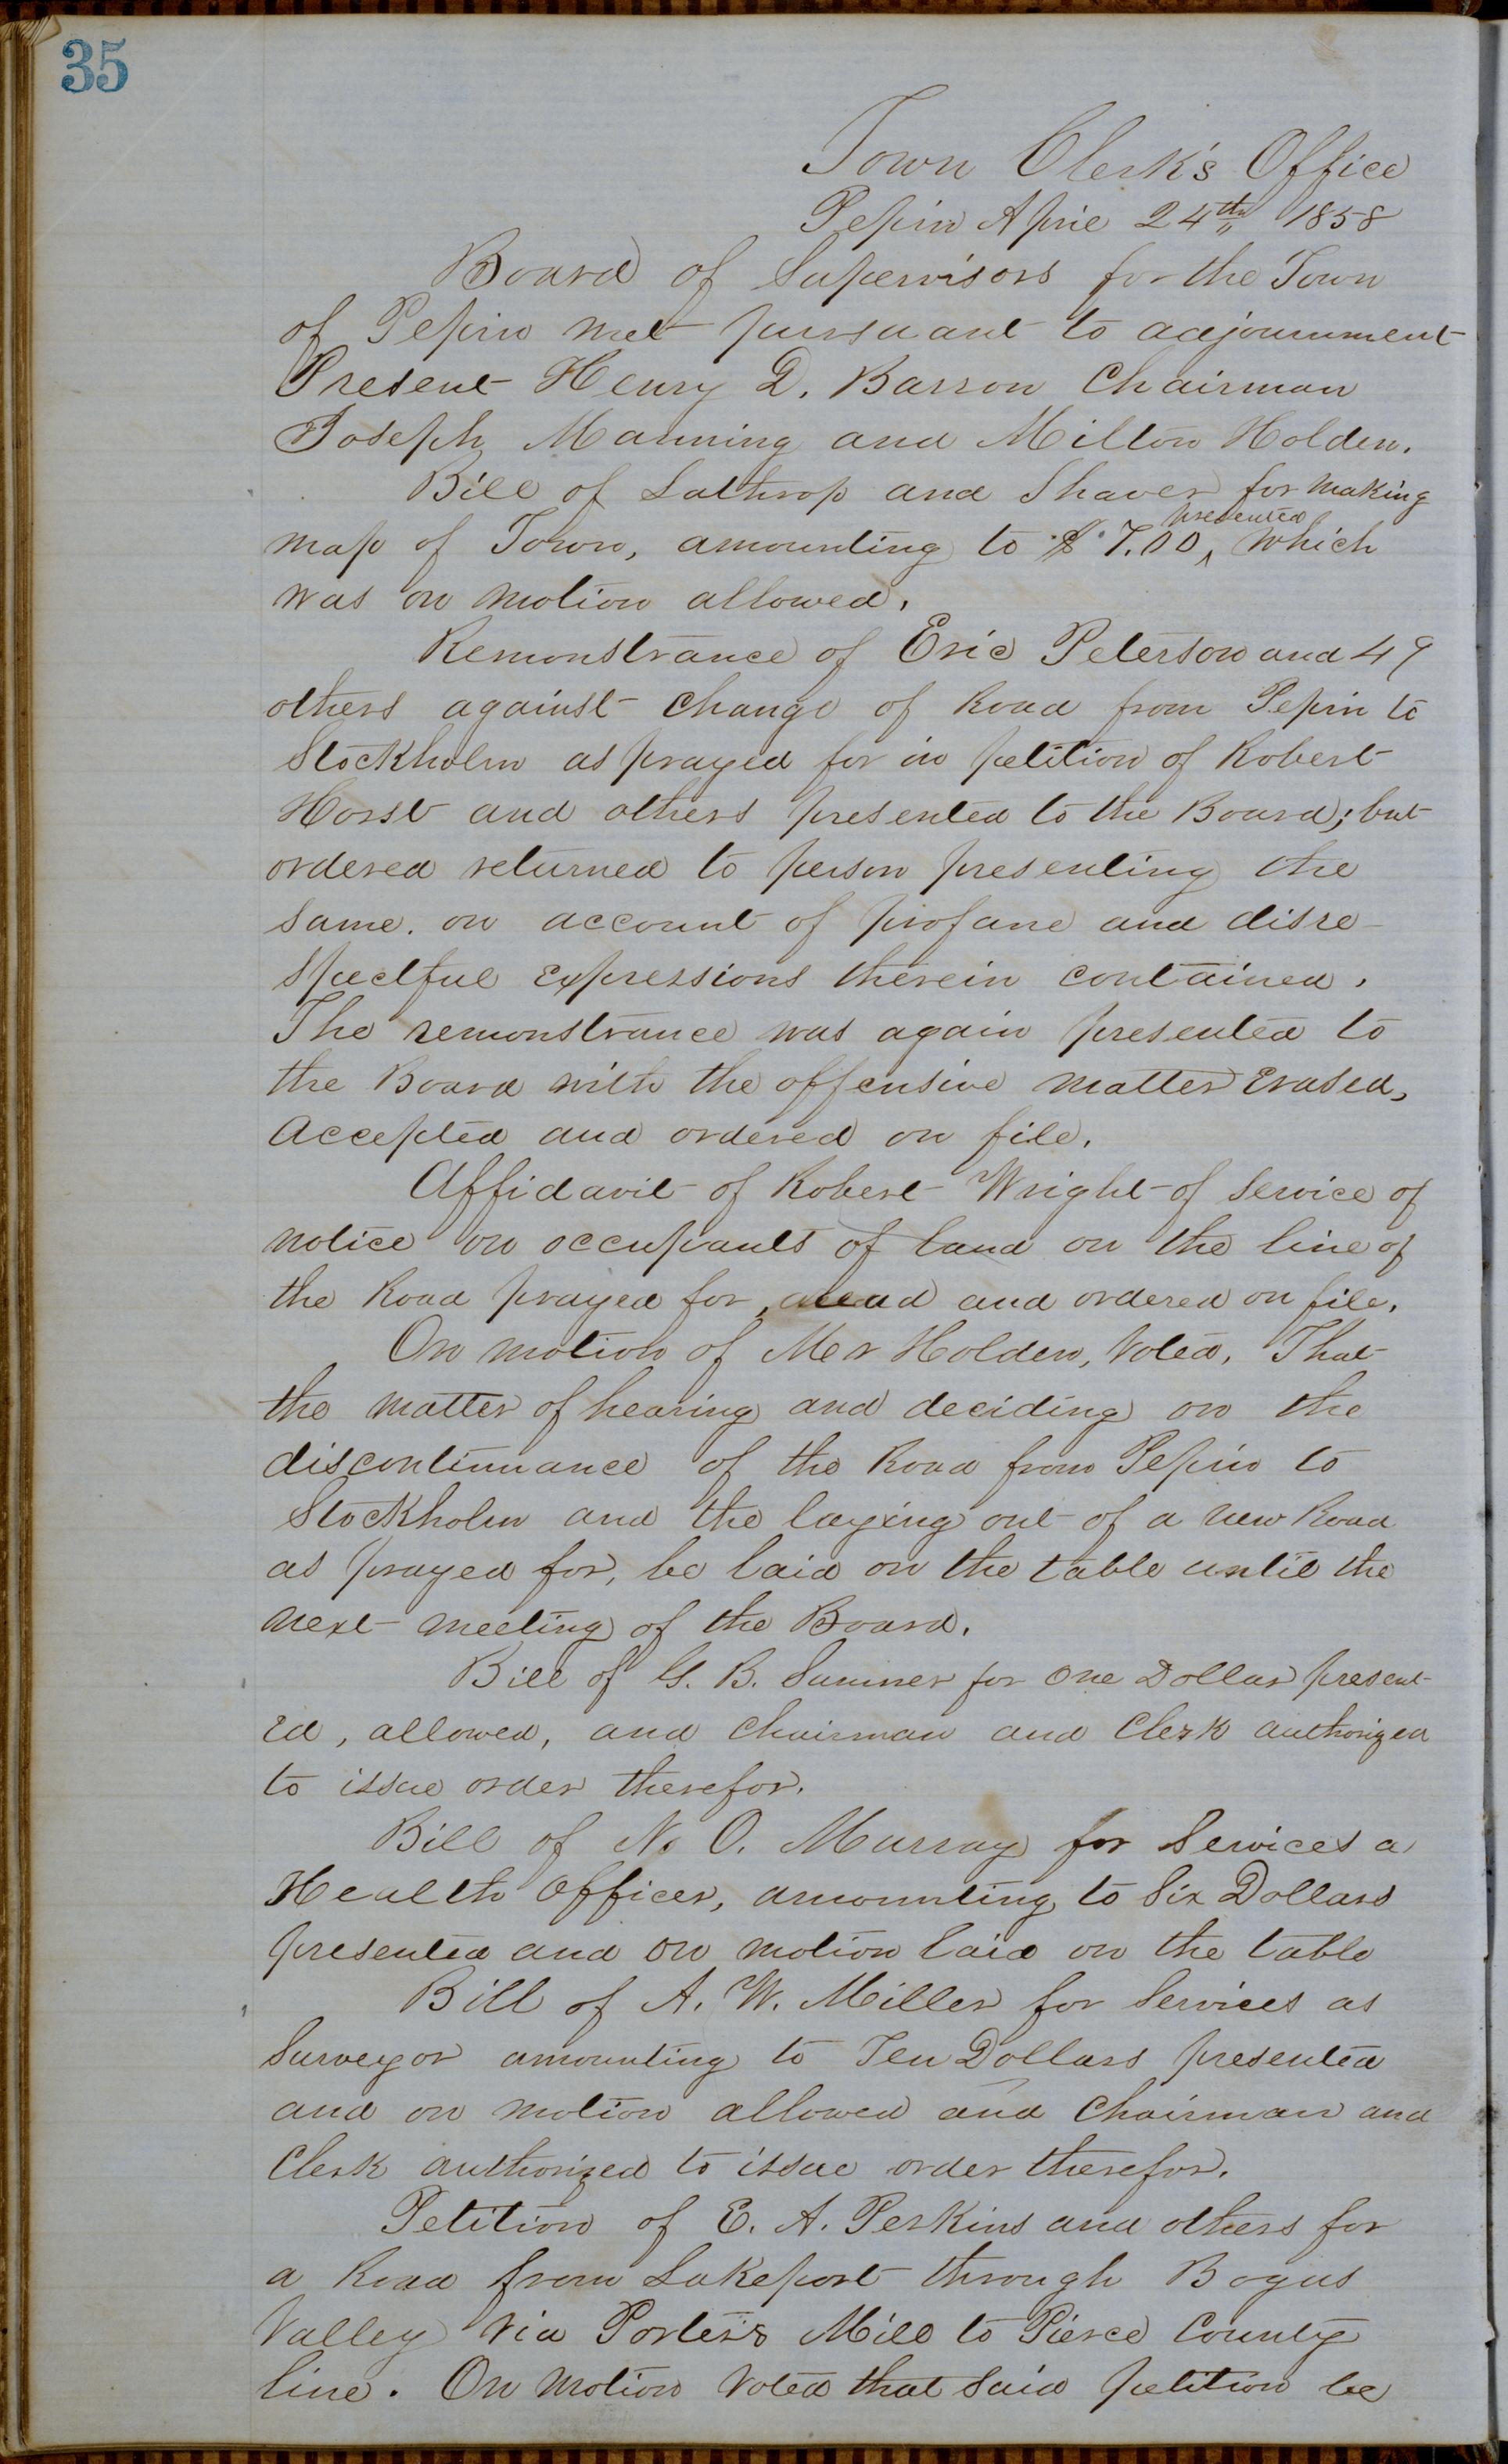 35
Town Clerk's Office
Pepin April 24th 1858
Board of Supervisors for the Town
of Pepin met pursuant to adjournment
Present Henry D. Barron Chairman
Joseph Manning and Milton Holden.
Bill of Lathrop and Shaver for making
map of Town, amounting to $7.00, presented which
was on motion allowed.
Remonstrance of Eric Peterson and 49
others against change of Road from Pepin to
Stockholm as prayed for in petition of Robert
Horst and others presented to the Board; but
ordered returned to person presenting the
same. on account of profane and disre-
spectful expressions therein contained.
The remonstrance was again presented to
the Board with the offensive matter Erased,
Accepted and ordered on file.
Affidavit of Robert Wright of Service of
notice on occupants of land on the line of
the Road prayed for, read and ordered on file.
On motion of Mr Holden, Voted, That
the matter of hearing and deciding on the
discontinuance of the Road from Pepin to
Stockholm and the laying out of a new Road
as prayed for, be laid on the table until the
next meeting of the Board.
Bill of G. B. Sumner for One Dollar present-
ed, allowed, and Chairman and Clerk authorized
to issue order therefor.
Bill of N. O. Murray for Services a
Health Officer, amounting to Six Dollars
presented and on motion laid on the table
Bill of A. W. Miller for Services as
Surveyor amounting to Ten Dollars presented
and on motion allowed and Chairman and
Clerk authorized to issue order therefor.
Petition of E. A. Perkins and others for
a Road from Lakeport through Bogus
Valley via Porter's Mill to Pierce County
line. On motion Voted that Said petition be